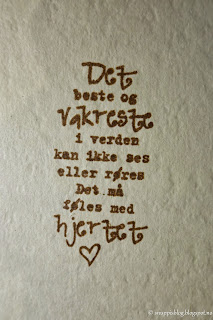 Det
beste og
vakreste
i verden
kan ikke ses
eller røres
Det må
føles med
hjertet